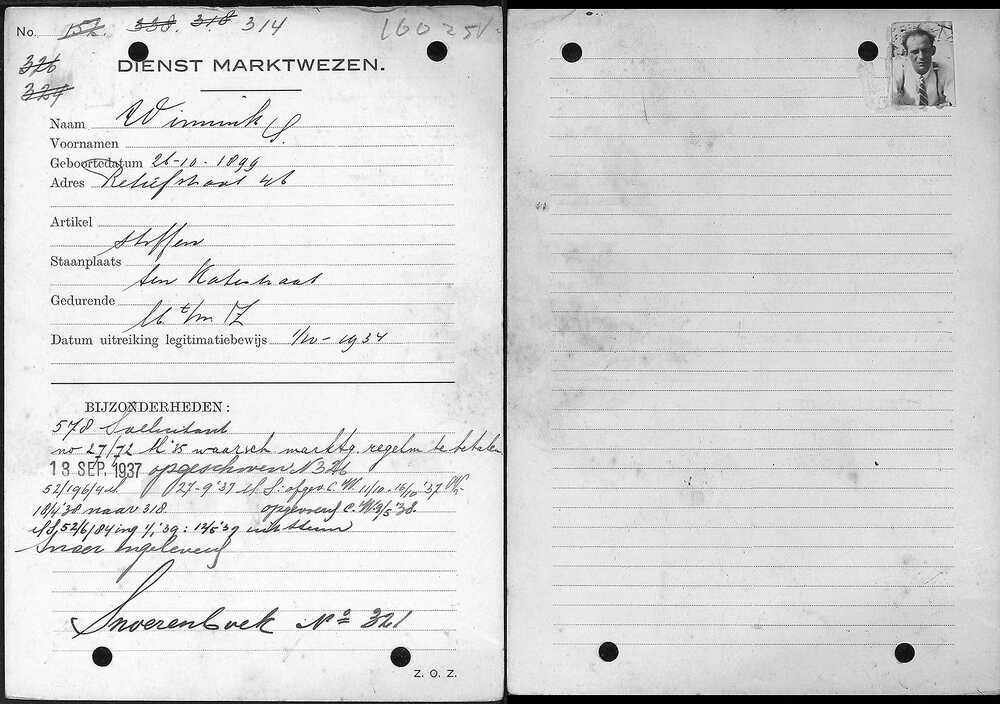 No. 157. 338. 318. 314
160251
326
324
DIENST MARKTWEZEN.
Naam Winnink S.
Voornamen
Geboortedatum 26-10-1899
Adres Retiefstraat 46
Artikel
stoffen
Staanplaats
ten Katestraat
Gedurende
M t/m Z
Datum uitreiking legitimatiebewijs 1/10-1934
BIJZONDERHEDEN:
578 Sollicitant
no 27/72 M '35 waarsch. marktg. regelm te betalen
13 SEP. 1937 opgeschoven N 326
52/196/4 27-9-'37 11/10-16/10 '37
18/4 '38 naar 318. 3/5 '38.
52/6/84 ing 1/1 '39: 12/5 '39
Snoer ingeleverd
Snoerenboek No 321
Z. O. Z.